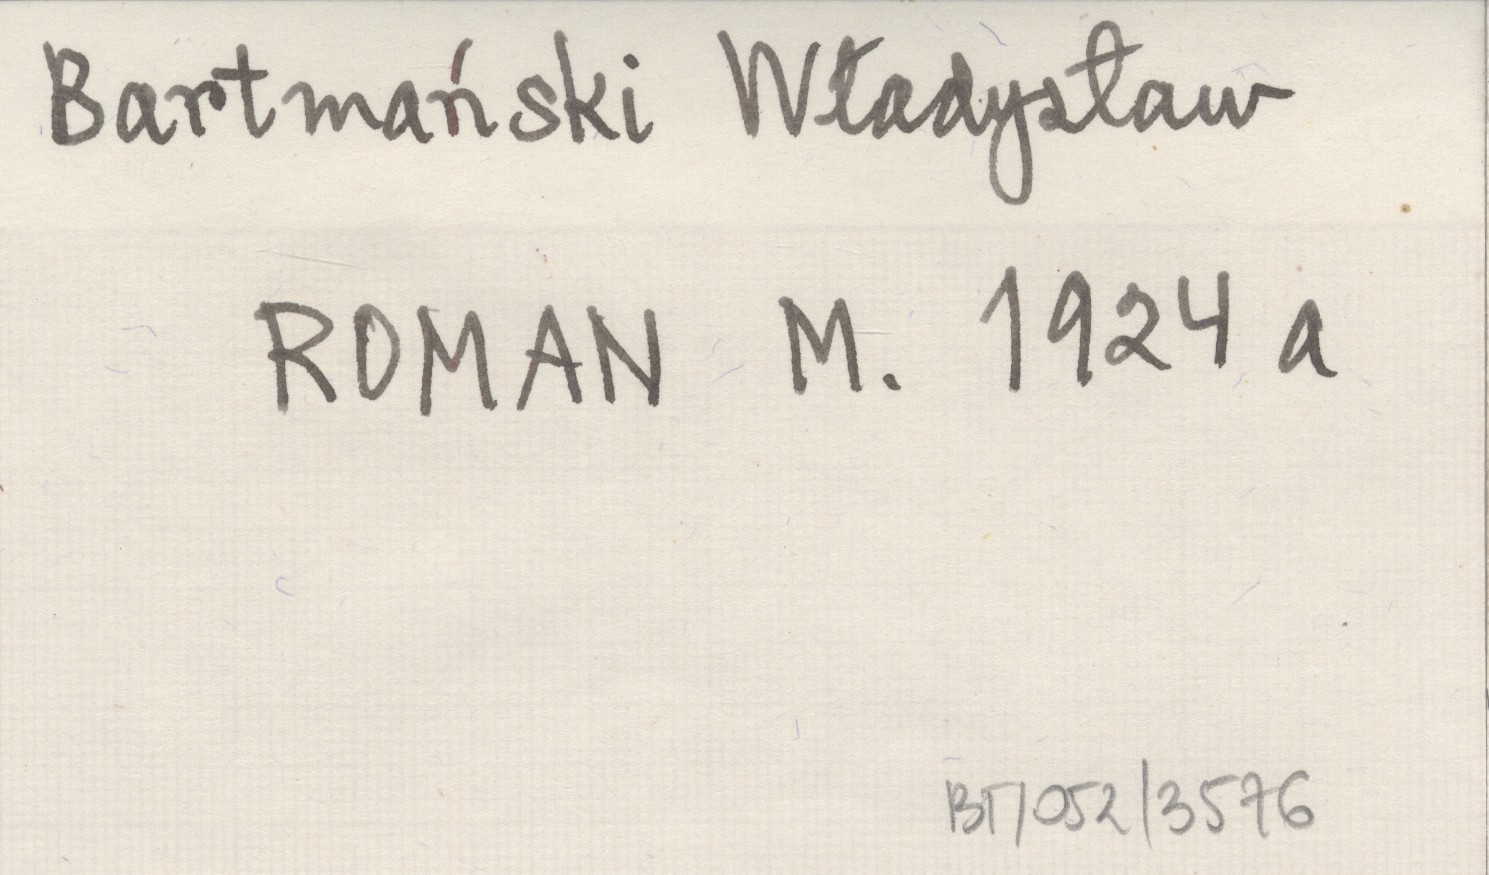 Bartmański Władysław
ROMAN M. 1924 a
BT/052/3576